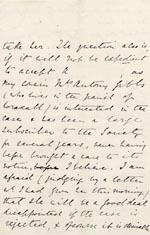 take her. The question also is,
if it will not be expedient
to accept                ; as
my cousin Mrs Antony Gibbs
(who lives in the parish of
        ) is interested in the
case & has been a large
subscriber to the Society
for several years, never having
before brought a case to its
notice,         I believe. I am
afraid (judging by a letter
I had from her this morning)
that she will be a good deal
disappointed if the case is
rejected, & of course it is desirable